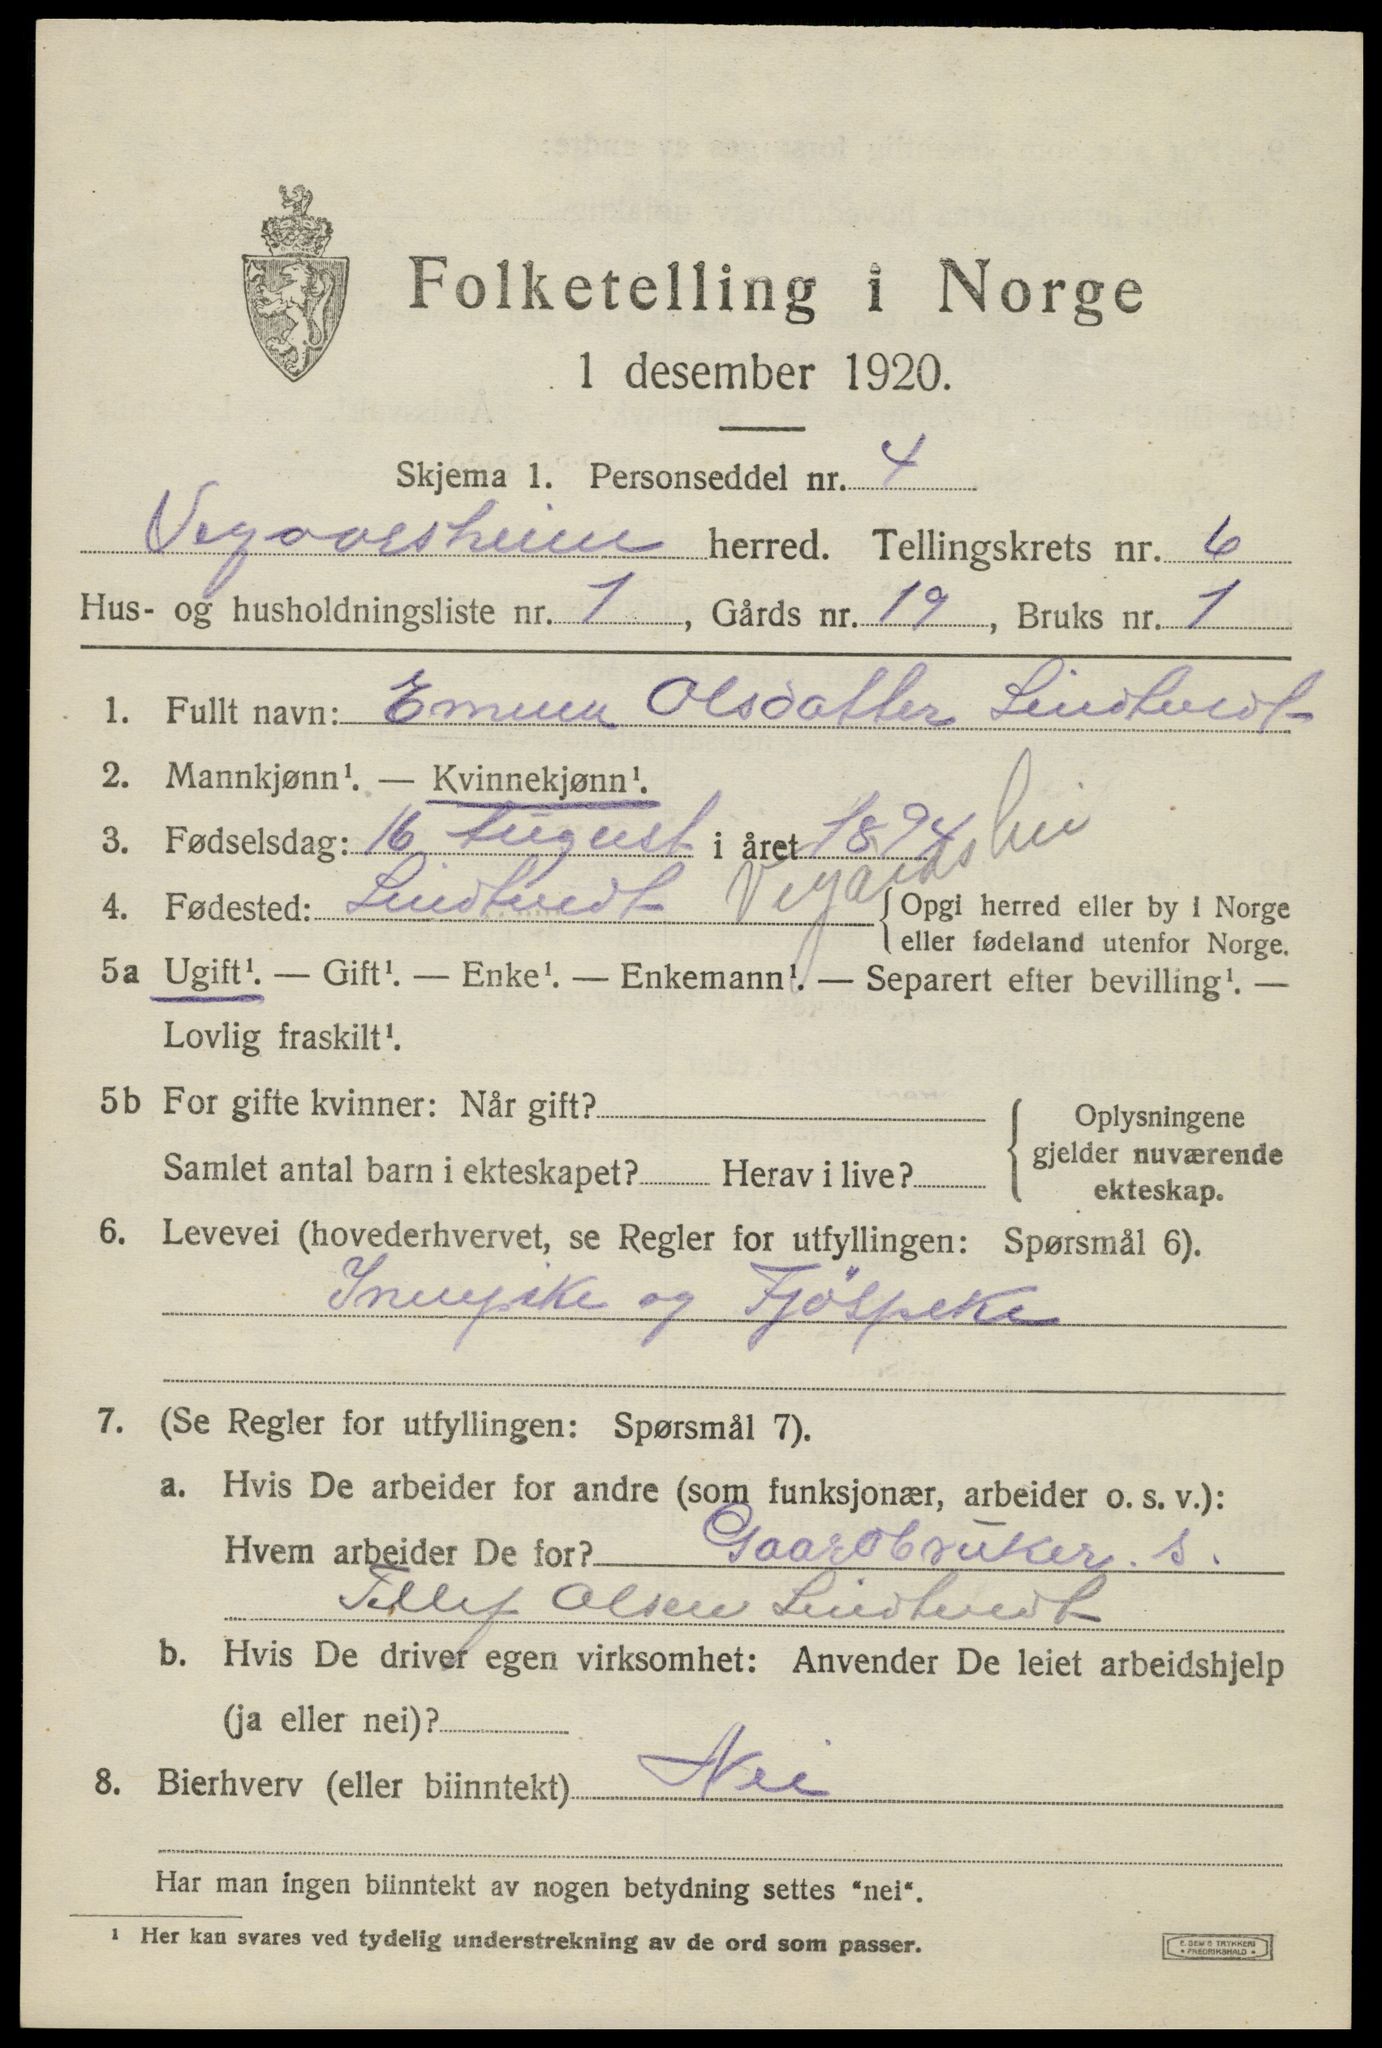 Folketelling i Norge
1 desember 1920.
Skjema 1. Personseddel nr. 4
Vegaarsheien herred. Tellingskrets nr. 6
Hus- og husholdningsliste nr. 1, Gårds nr. 19, Bruks nr. 1
1. Fullt navn: Emma Olsdatter Lindtvedt
2. Mannkjønn¹. — Kvinnekjønn¹.
3. Fødselsdag: 16 August i året 1894
4. Fødested: Lindtvedt Vegårdshei {Opgi herred eller by i Norge
eller fødeland utenfor Norge.
5a Ugift¹. — Gift¹. — Enke¹. — Enkemann¹. — Separert efter bevilling¹. —
Lovlig fraskilt¹.
5b For gifte kvinner: Når gift?
Samlet antal barn i ekteskapet? Herav i live?
{Oplysningene
gjelder nuværende
ekteskap.
6. Levevei (hovederhvervet, se Regler for utfyllingen: Spørsmål 6).
Innepike og Fjöspike
7. (Se Regler for utfyllingen: Spørsmål 7).
a. Hvis De arbeider for andre (som funksjonær, arbeider o. s. v.):
Hvem arbeider De for? Gaardbruker. s.
Tellef Olsen Lindtvedt
b. Hvis De driver egen virksomhet: Anvender De leiet arbeidshjelp
(ja eller nei)?
8. Bierhverv (eller biinntekt) Nei
Har man ingen biinntekt av nogen betydning settes "nei".
¹ Her kan svares ved tydelig understrekning av de ord som passer.
E. SEM'S TRYKKERI
• FREDRIKSHALD •